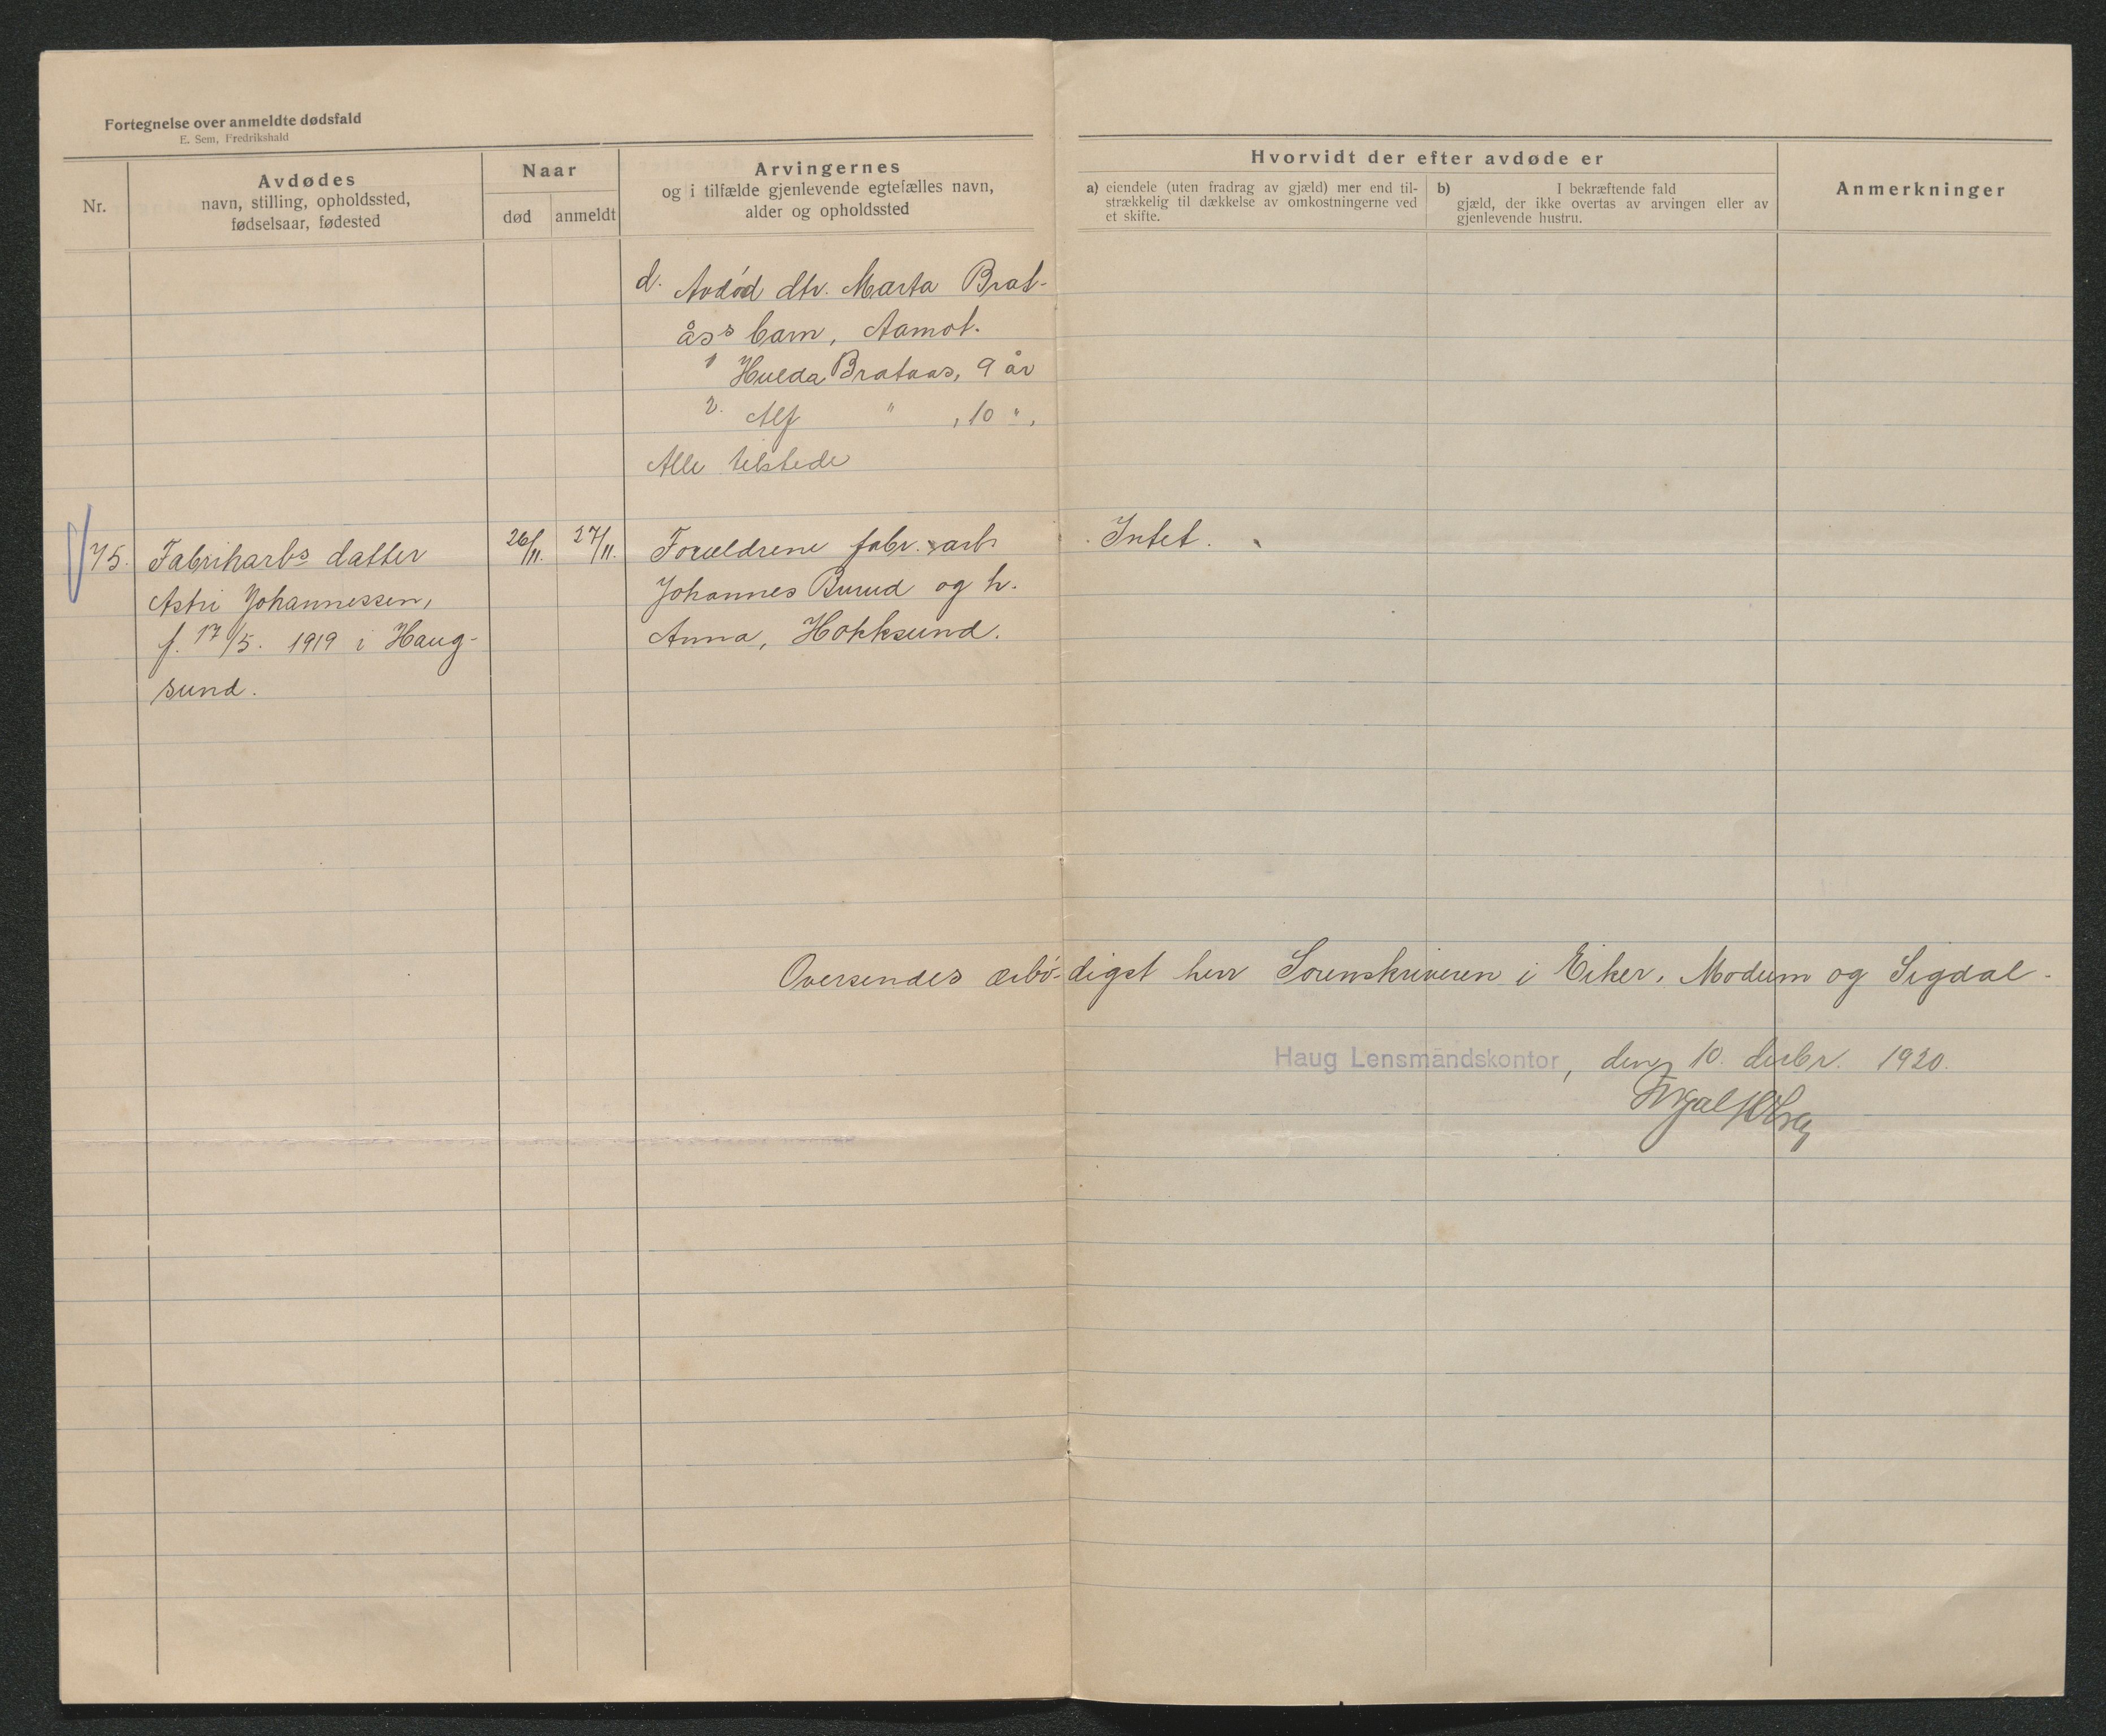 Fortegnelse over anmeldte dødsfald
E. Sem, Fredrikshald
Nr.
Avdødes
navn, stilling, opholdssted,
fødselsaar, fødested
Naar
død
anmeldt
Arvingernes
og i tilfælde gjenlevende egtefælles navn,
alder og opholdssted
Hvorvidt der efter avdøde er
a) eiendele (uten fradrag av gjæld) mer end til-
strækkelig til dækkelse av omkostningerne ved
et skifte.
b) I bekræftende fald
gjæld, der ikke overtas av arvingen eller av
gjenlevende hustru.
Anmerkninger
d. Avdød dtr. Marta Brat-
åss barn, Aamot.
1 Hulda Brataas, 9 år
2. Alf " , 10 ",
Alle tilstede
75. Fabrikarbs datter
Astri Johannessen,
f. 17/5. 1919 i Haug-
sund.
26/11.
27/11.
Forældrene fabr. arb.
Johannes Burud og h.
Anna, Hokksund.
Intet.
Oversendes ærbødigst herr Sorenskriveren i Eiker, Modum og Sigdal.
Haug Lensmandskontor, den 10. desbr. 1920.